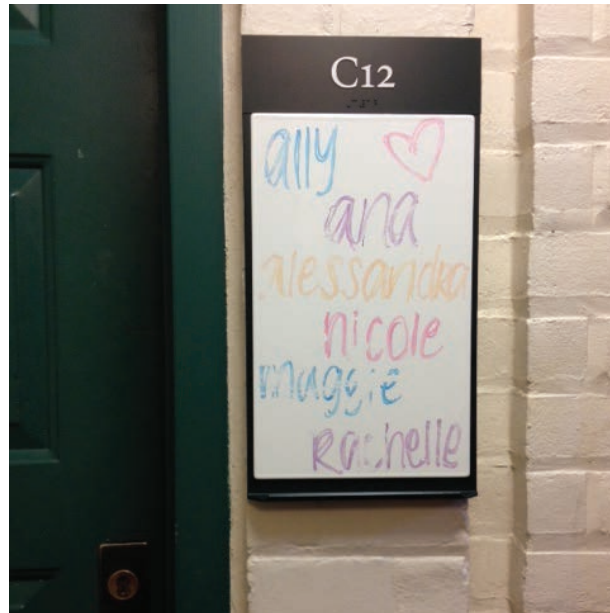 C12
ally
ana
alessandra
nicole
maggie
Rachelle